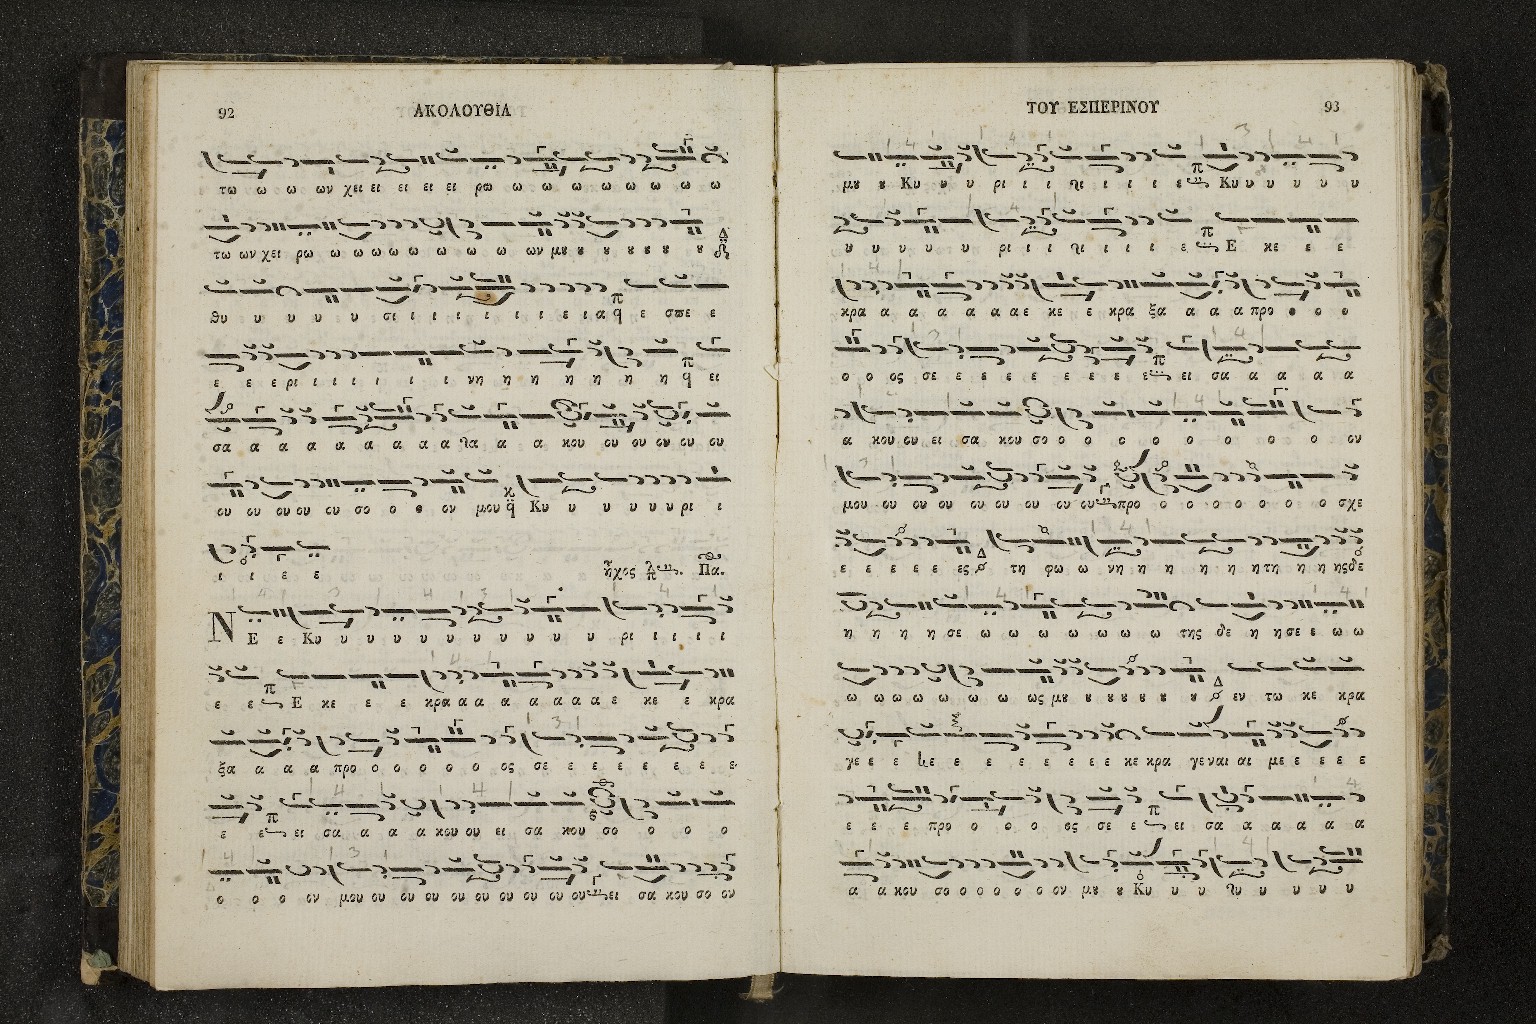 92
ΑΚΟΛΟΥΘΙΑ
τω ω ω ων χει ει ει ει ει ρω ω ω ω ω ω ω ω ω
τω ων χει ρω ω ω ω ω ω ω ω ω ων μȣ ȣ ȣ ȣ ȣ ȣ ȣ
Δ
θυ υ υ υ υ υ σι ι ι ι ι ι ι ι ε ι α π ϥ ε σπε ε
ε ε ε ρι ι ι ι ι ι ι νη η η η η η η π ϥ ει
σα α α α α α α α α α α α α κου ου ου ου ου ου
ου ου ου ου ου σο ο ο ον μου ϥ Κυ υ υ υ υ υ ρι ι
ι ι ε ε
ἦχος Πα.
ΝΕ ε Κυ υ υ υ υ υ υ υ υ υ υ υ ρι ι ι ι ι
ε ε π Ε κε ε ε κρα α α α α α α α ε κε ε κρα
ξα α α α προ ο ο ο ο ο ος σε ε ε ε ε ε ε ε
ε ε π ει σα α α α α κου ου ει σα κου σο ο ο ο
ο ο ο ον μου ου ου ου ου ου ου ου ου ου Γ ει σα κου σο ον
ΤΟΥ ΕΣΠΕΡΙΝΟΥ
93
μȣ ȣ Κυ υ υ υ ρι ι ι ι ι ι ι ε π Κυ υ υ υ υ υ
υ υ υ υ υ υ ρι ι ι ι ι ι ι ε π Ε κε ε ε
κρα α α α α α α ε κε ε κρα ξα α α α προ ο ο ο
ο ο ος σε ε ε ε ε ε ε ε ε π ει σα α α α α
α κου ου ει σα κου σο ο ο ο ο ο ο ο ο ον
μου ου ου ου ου ου ου ου ου Γ προ ο ο ο ο ο ο ο σχε
ε ε ε ε ε ες Δ τη φω ω νη η η η η η τη η η ης δε
η η η η σε ω ω ω ω ω ω ω ω της δε η η σε ε ω ω
ω ω ω ω ω ω ω ως μȣ ȣ ȣ ȣ ȣ ȣ ȣ Δ εν τω κε κρα
γε ε ε ε ε ε ε ε ε ε κε κρα γε ναι αι με ε ε ε ε
ε ε ε προ ο ο ο ος σε ε π ει σα α α α α α
α α κου σο ο ο ο ο ο ον μȣ ȣ Κυ υ υ υ υ υ υ υ